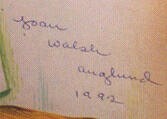 Joan
walsh
anglund
1992